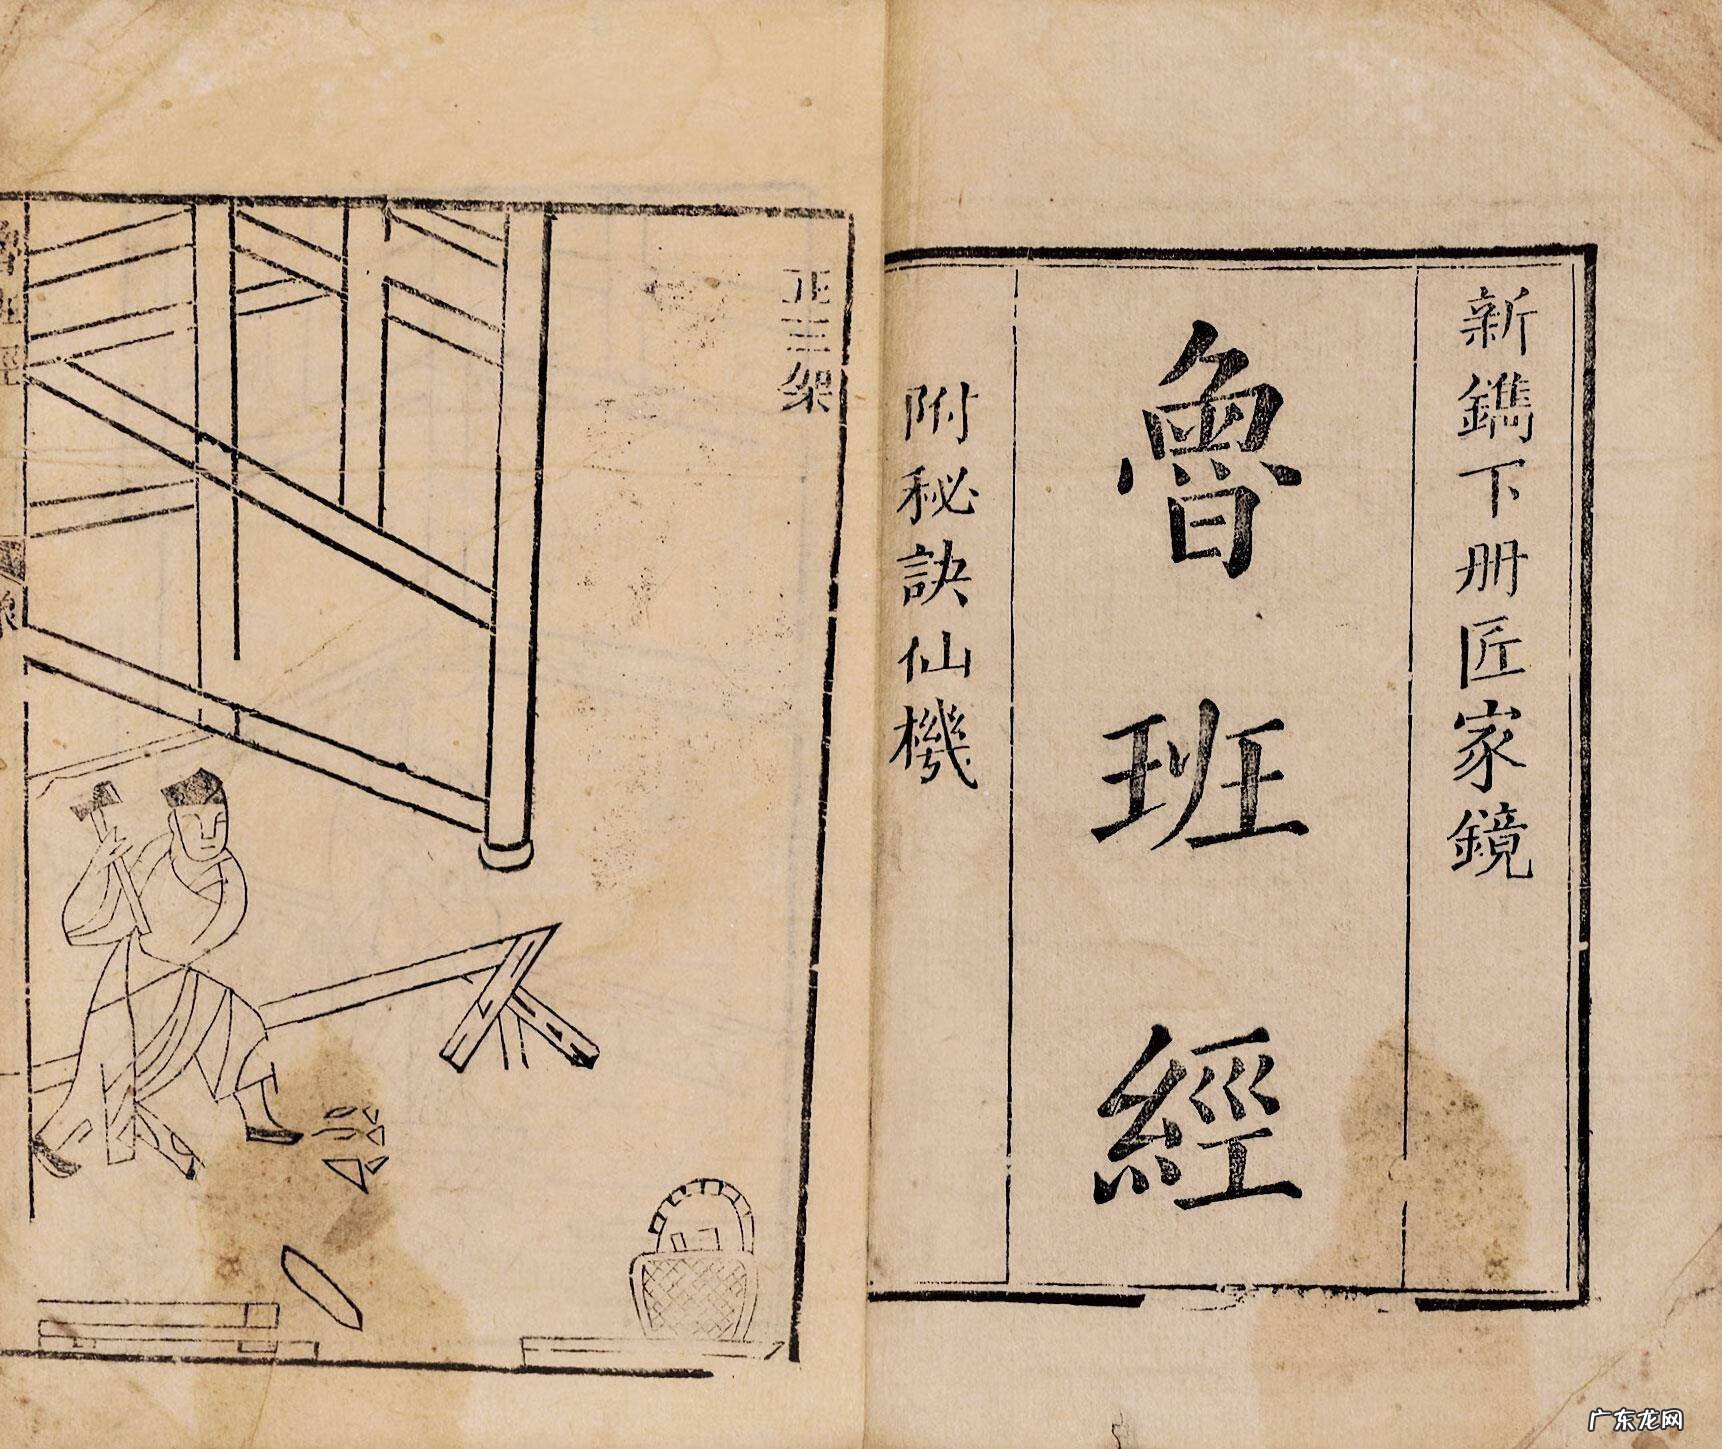 新鐫下册匠家鏡
魯班經
附秘訣仙機
正三架
魯班經
廣东龙网